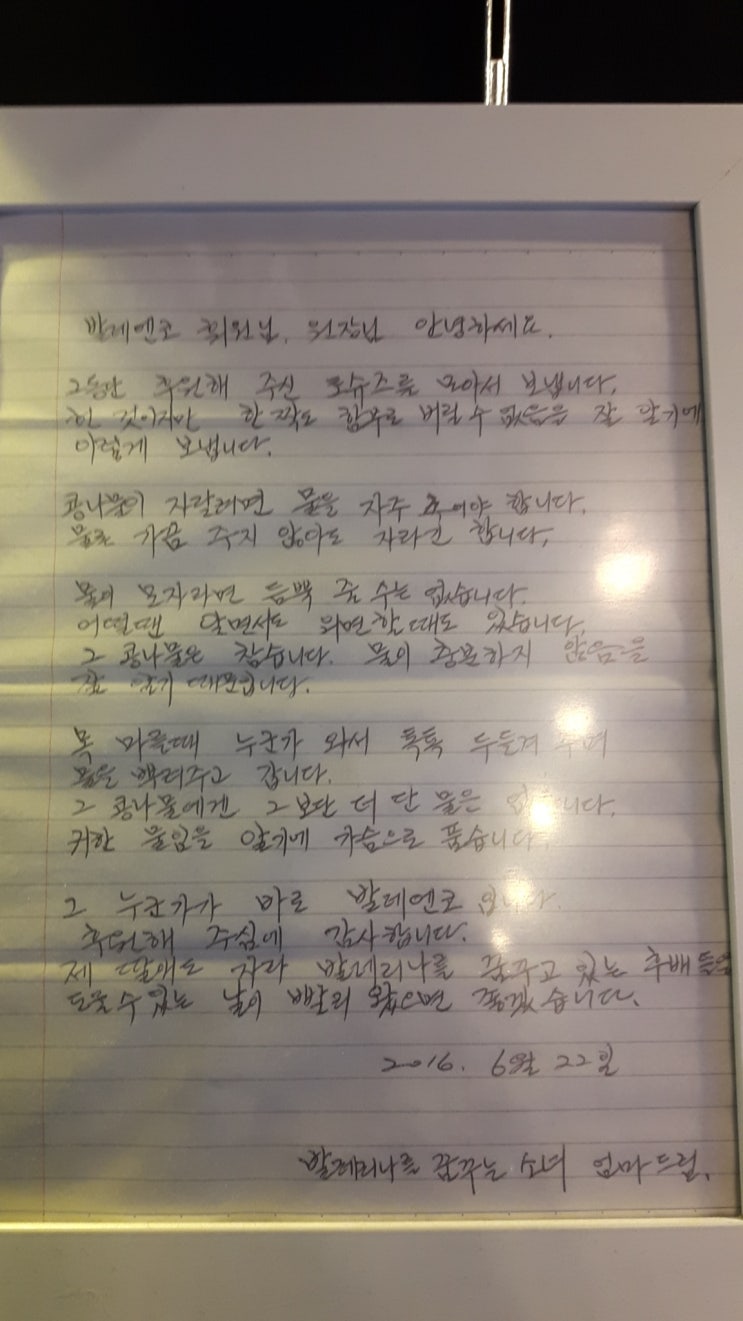 발레앤코 회원님, 원장님 안녕하세요.
그동안 후원해 주신 토슈즈를 모아서 보냅니다.
헌 것이지만 한 짝도 함부로 버릴 수 없음을 잘 알기에
이렇게 보냅니다.
콩나물이 자랄려면 물을 자주 주어야 합니다.
물론 가끔 주지 않아도 자라긴 합니다.
물이 모자라면 듬뿍 줄 수는 없습니다.
어떨땐 알면서도 외면할때도 있습니다.
그 콩나물은 참습니다. 물이 충분하지 않음을
잘 알기 때문입니다.
목 마를때 누군가 와서 톡톡 두들겨 주며
물을 뿌려주고 갑니다.
그 콩나물에겐 그보단 더 단 물은 없습니다.
귀한 물임을 알기에 가슴으로 품습니다.
그 누군가가 바로 발레앤코 입니다.
후원해 주심에 감사합니다.
제 딸애도 자라 발레리나를 꿈꾸고 있는 후배들을
도울 수 있는 날이 빨리 왔으면 좋겠습니다.
2016. 6월 22일
발레리나를 꿈꾸는 소녀 엄마드림.